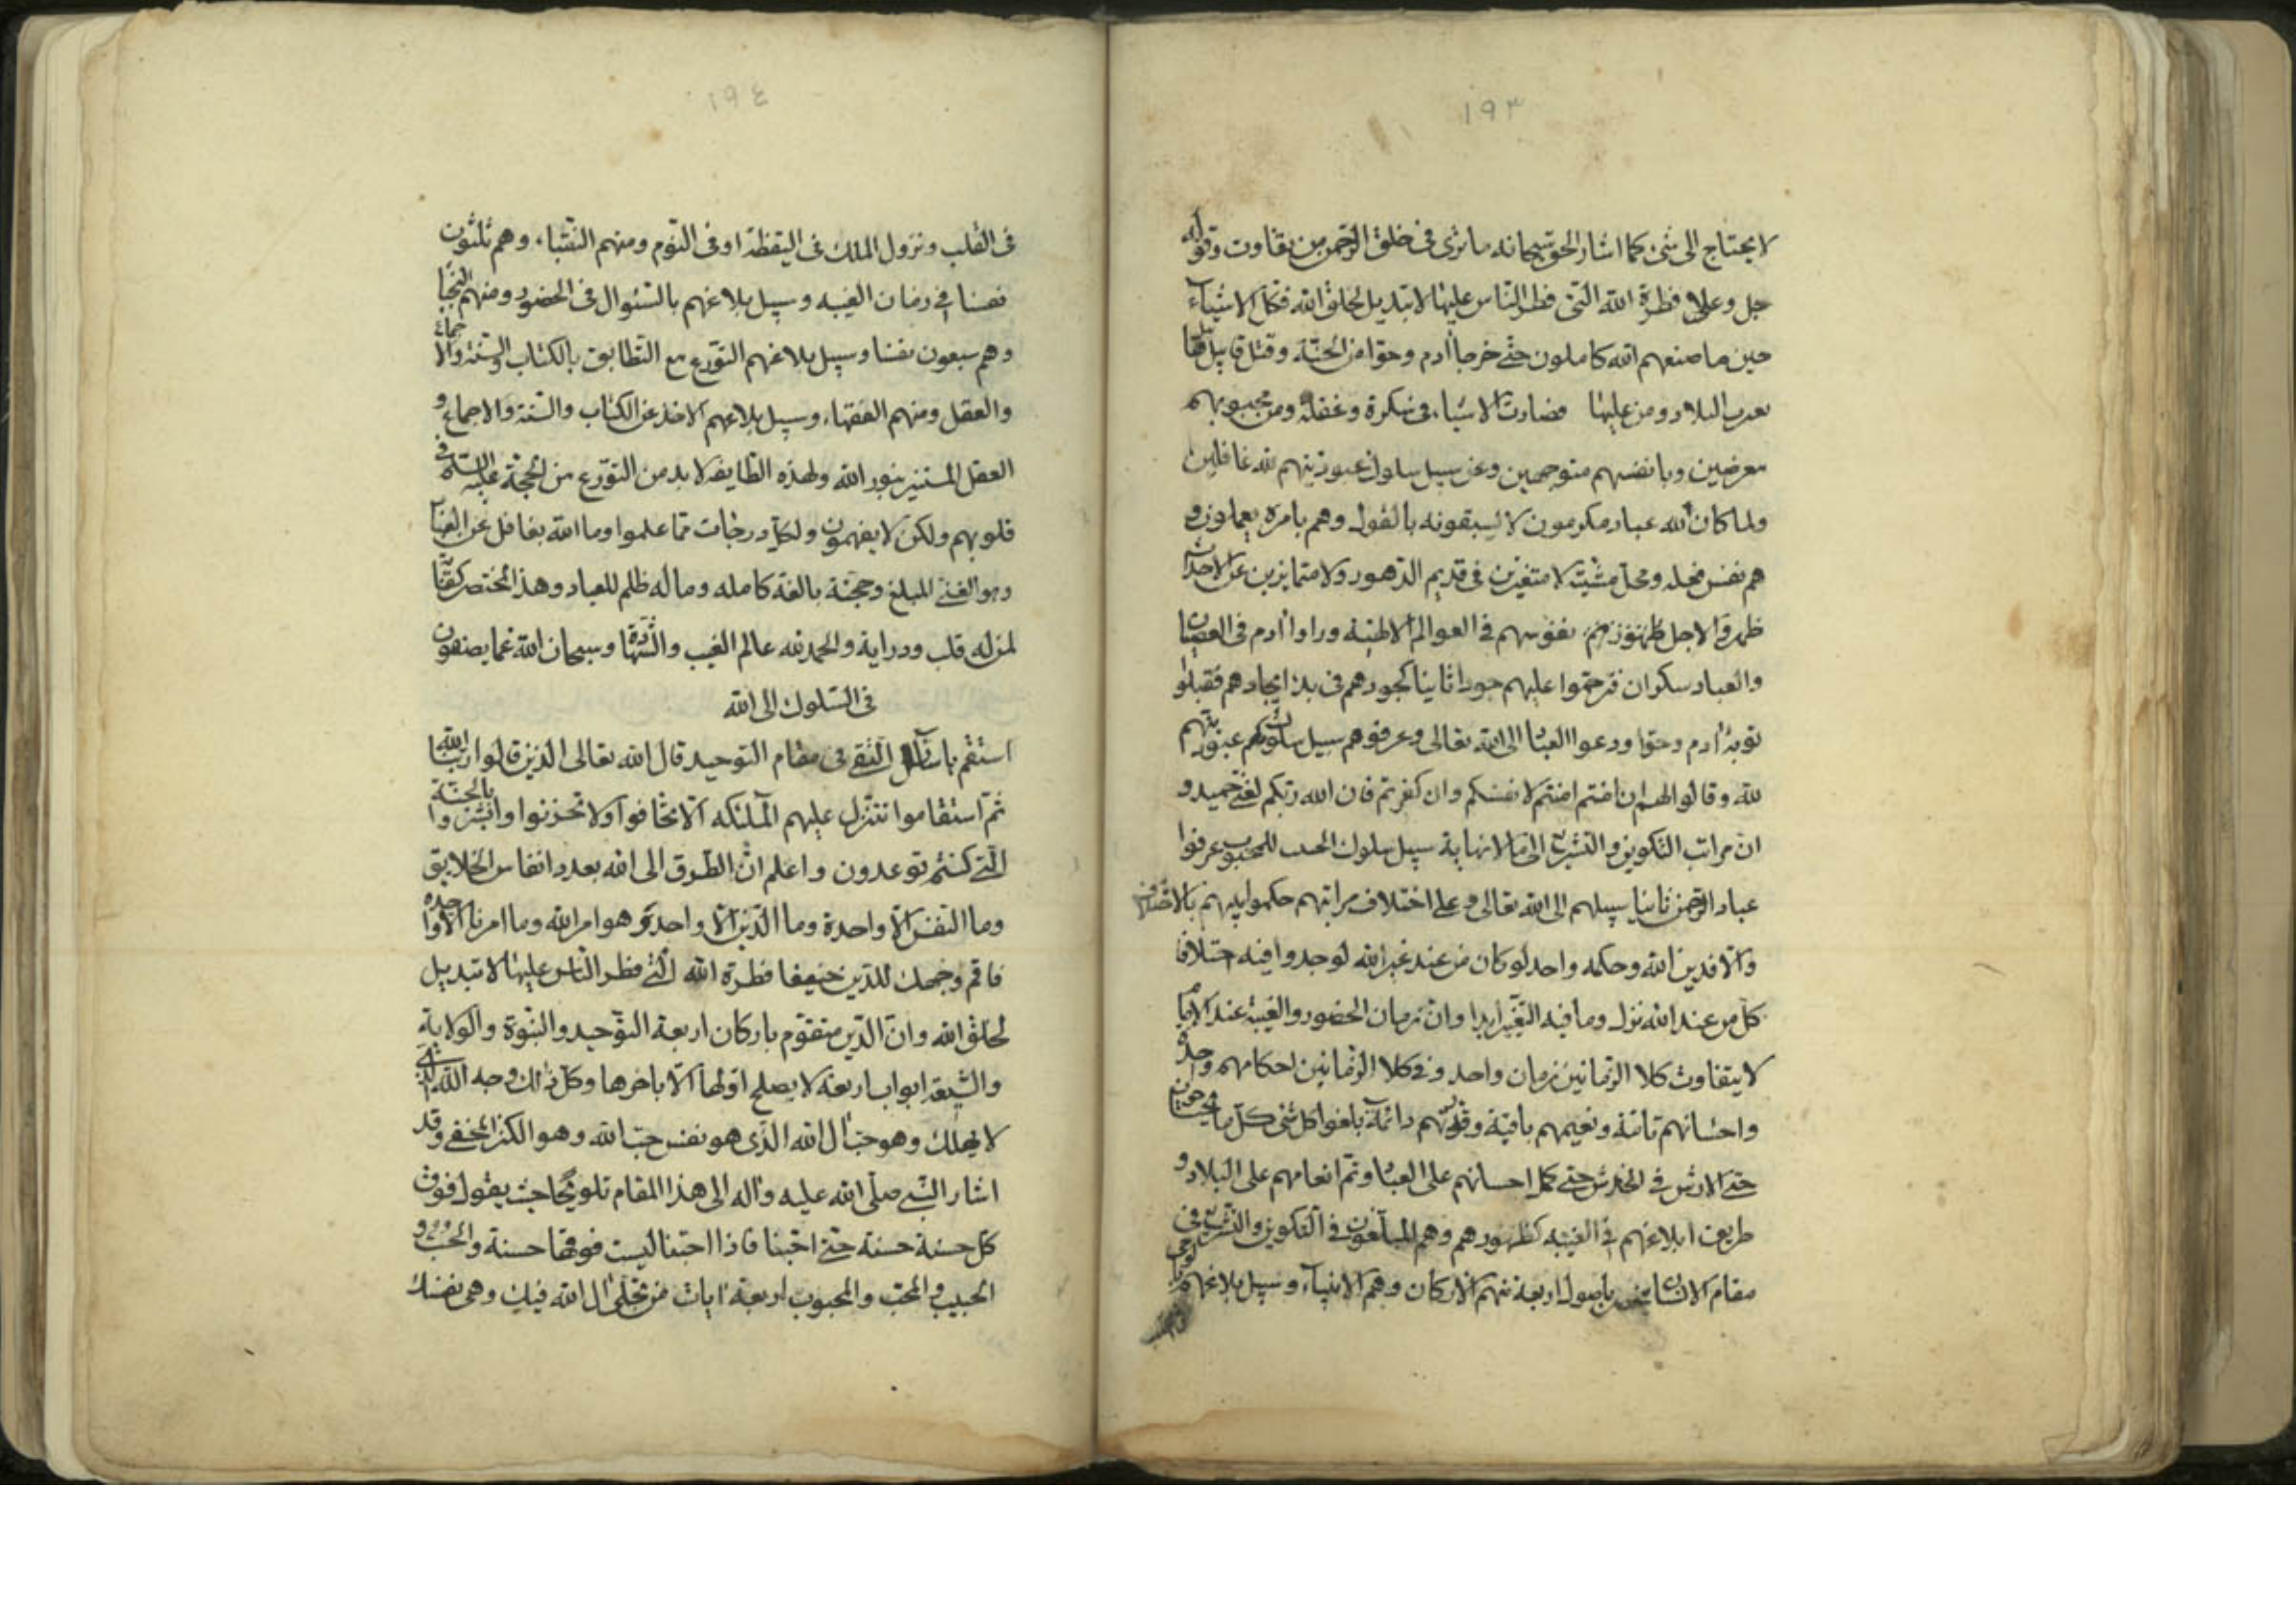 ١٩٣
لا يحتاج الى شئ كما اشار الحق سبحانه ما ترى فى خلق الرحمن من تفاوت وقوله
جل وعلا فطرة الله التى فطر الناس عليها لا تبديل لخلق الله فكل الاشياء
حين ما صنعهم الله كاملون حتى خرجا ادم وحوا من الجنة وقتل قابيل
البلاد ومن عليها فصارت الاشياء فى سكرة وغفلة ومن محبوبهم
معرضين وبانفسهم متوجهين وعن سبيل سلوك عبوديتهم لله غافلين
ولما كان لله عباد مكرمون لا يسبقونه بالقول وهم بامره يعملون و
هم نفس فعله ومحل مشيته لا متغيرين فى قديم الدهور ولا متمايزين عن
ظهر نفوسهم فى العوالم وراوا ادم فى العصيان
والعباد سكران فرحموا عليهم جودا ثانيا كجودهم فى بدء ايجادهم فقبلوا
توبة ادم وحوا ودعوا العباد الى الله تعالى وعرفوهم سبيل سلوكهم عبوديتهم
لله وقالوا لهم ان امنتم امنتم لانفسكم وان كفرتم فان الله ربكم لغنى حميد و
ان مراتب التكوين والتشريع الى ما لا نهاية سبيل سلوك الحب للمحبوب عرفوا
عباد الرحمن ثانيا سبيلهم الى الله تعالى وعلى اختلاف مراتبهم حكموا بالاختلاف
والا فدين الله وحكمه واحد لو كان من عند غير الله لوجدوا فيه اختلافا
كل من عند الله نزل وما فيه التغير ابدا وان زمان الحضور والغيبة عند
لا يتفاوت كلا الزمانين زمان واحد وفى كلا الزمانين احكامهم واحدة
واحسانهم تامة ونعيمهم باقية وقدرتهم دائمة بلغوا كل شئ كل ما يحتاجون
حتى الارش فى الخدش حتى كمل احسانهم على العباد وتم انعامهم على البلاد و
طريق ابلاغهم فى الغيبة كظهورهم وهم المبلغون فى التكوين والتشريع فى
مقام الانسان باصول اربعة منهم الاركان وهم الانبياء وسبيل بلاغهم
١٩٤
فى القلب ونزول الملك فى اليقظة او فى النوم ومنهم النقباء وهم ثلثون
نفسا فى زمان الغيبه وسبيل بلاغهم بالسئوال فى الحضور ومنهم النجبا
وهم سبعون نفسا وسبيل بلاغهم التورع مع التطابق بالكتاب والسنة والاجماع
والعقل ومنهم الفقهاء وسبيل بلاغهم الاخذ عن الكتاب والسنة والاجماع و
العقل المستنير بنور الله ولهذه الطايفه لا بد من التورع من الحجة عليه السلام فى
قلوبهم ولكن لا يفهمون ولكل درجات مما عملوا وما الله بغافل عن العباد
وهو الغنى المبلغ وحجته بالغة كامله وما له ظلم للعباد وهذا المختصر كفتنا
لمن له قلب ودراية والحمد لله عالم الغيب والشهادة وسبحان الله عما يصفون
فى السلوك الى الله
استقم يا سائل التقى فى مقام التوحيد قال الله تعالى الذين قالوا ربنا الله
ثم استقاموا تتنزل عليهم الملئكه الا تخافوا ولا تحزنوا وابشروا بالجنة
التى كنتم توعدون واعلم ان الطرق الى الله بعدد انفاس الخلايق
وما النفس الا واحدة وما الدين الا واحد وهو امر الله وما امرنا الا واحدة
فاقم وجهك للدين حنيفا فطرة الله التى فطر الناس عليها لا تبديل
لخلق الله وان الدين متقوم باركان اربعة التوحيد والنبوة والولاية
والشيعة ابواب اربعة لا يصلح اولها الا باخرها وكل ذلك وجه الله الذى
لا يهلك وهو حب ال الله الذى هو نفس حب الله وهو الكنز المخفى وقد
اشار النبى صلى الله عليه واله الى هذا المقام تلويحا حيث يقول فوق
كل حسنة حسنة حتى احبنا فاذا احبنا ليست فوقها حسنة والحب و
الحبيب والمحب والمحبوب اربعة ايات من تجلى ال الله فيك وهى نفسك